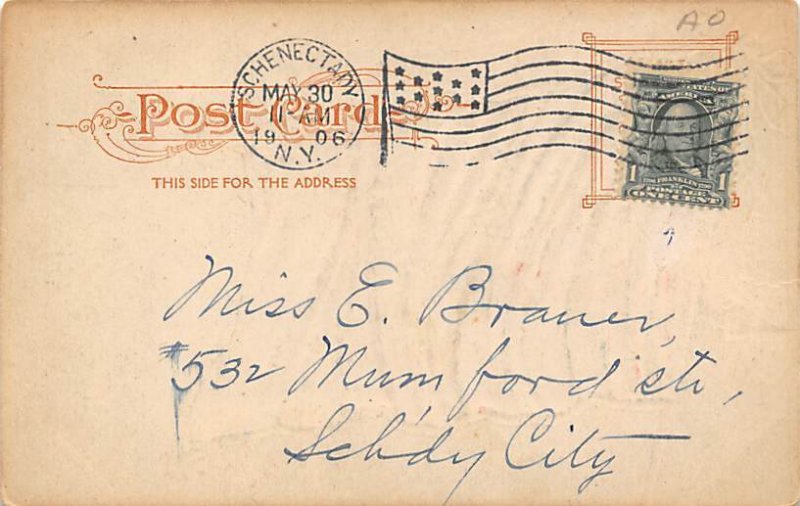 AO
SCHENECTADY
MAY 30
11 AM
1906
N.Y.
Post Cards
UNITED STATES OF
AMERICA
1 FRANKLIN 1
POSTAGE
ONE CENT
THIS SIDE FOR THE ADDRESS
Miss E. Brauer,
#532 Mumford st.,
Sch'dy City